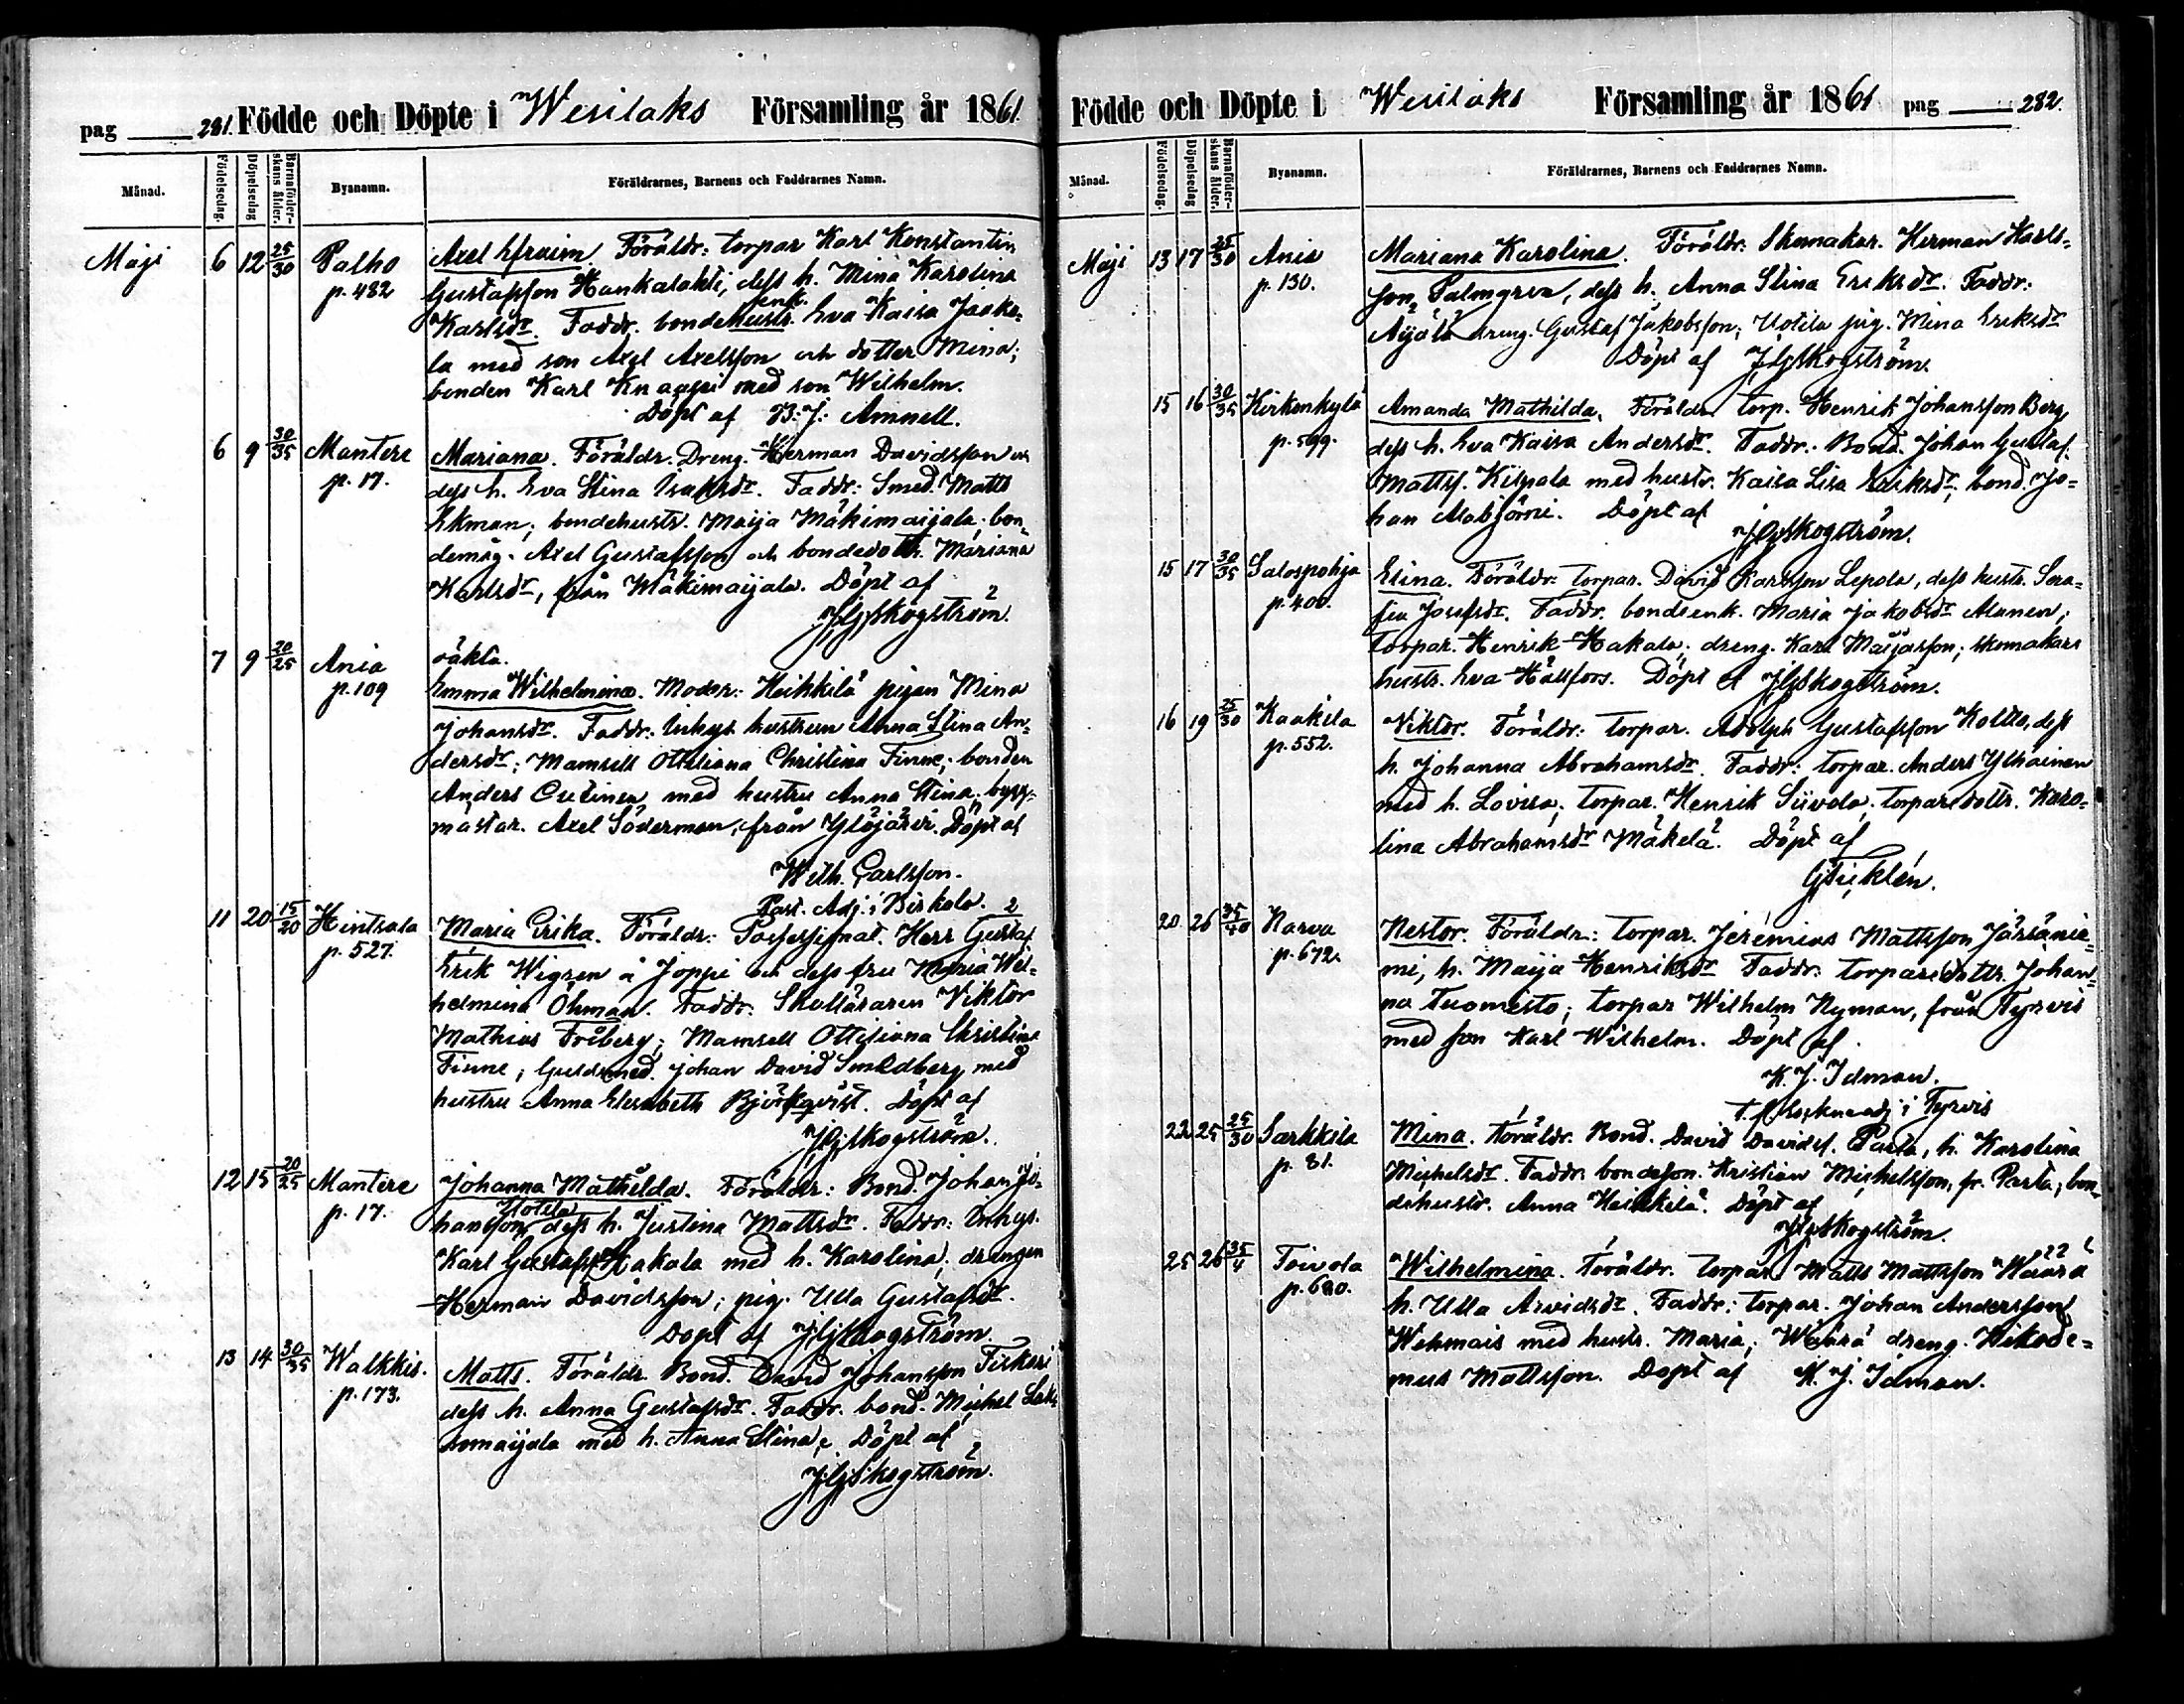 pag 281. Födde och Döpte i Wesilaks Församling år 1861.
Månad. Födelsedag. Döpelsedag Barnaföderskans ålder. Bysnamn. Föräldrarnes, Barnens och Faddrarnes Namn.
Maji 6 12 25/30 Palho p. 482 Axel Efraim. Föräldr: torpar Karl Konstantin
Gustafsson Hankalahti, dess h. Mina Karolina
enk.
Karlsdr. Faddr. bondehustr. Eva Kaisa Jaako-
la med son Axel Axelsson och dotter Mina;
bonden Karl Knaapi med son Wilhelm.
Döpt af B. J. Amnell.
6 9 30/35 Mantere p. 17. Mariana. Föräldr. Dreng. Herman Davidsson och
dess h. Eva Stina Isaksdr. Faddr: Smed. Matts
Ekman; bondehustr. Maija Mäkimaijala; bon-
demåg. Axel Gustafsson och bondedottr. Mariana
Karlsdr, från Mäkimaijala. Döpt af
Skogström.
7 9 20/25 Ania p. 109 oäkta.
Emma Wilhelmina. Moder: Heikkilä pigan Mina
Johansdr. Faddr: Inhys hustrun Anna Stina An-
dersdr; Mamsell Ottiliana Christina Finne; bonden
Anders Outinen med hustru Anna Stina; bygg-
mästar. Axel Söderman, från Ylöjärvi. Döpt af
Wilh. Carlsson.
Past. Adj. i Birkala.
11 20 15/20 Hintsala p. 527. Maria Erika. Föräldr: Possessionat. Herr Gustaf
Erik Wigren å Joppi och dess fru Maria Wil-
helmina Öhman. Faddr. Skolläraren Viktor
Mathias Fröberg; Mamsell Ottiliana Christina
Finne; Guldsmed. Johan David Smedberg med
hustru Anna Elisabeth Björkqvist. Döpt af
Skogström.
12 15 20/25 Mantere p. 17. Johanna Mathilda. Föräldr: Bond. Johan Jo-
Uotila
hansson dess h. Justina Mattsdr. Faddr: Inhys.
Karl Gustafss. Hakala med h. Karolina; drengen
Herman Davidsson; pig. Ulla Gustafsdr.
Döpt af Skogström.
13 14 30/35 Walkkis. p. 173. Matts. Föräldr. Bond. David Johansson Fiskari
dess h. Anna Gustafsdr. Faddr. bond. Michel
maijala med h. Anna Stina. Döpt af
Skogström.
Födde och Döpte i Wesilaks Församling år 1861 pag 282.
Månad. Födelsedag. Döpelsedag Barnaföderskans ålder. Bysnamn. Föräldrarnes, Barnens och Faddrarnes Namn.
Maji 13 17 25/30 Ania p. 130. Mariana Karolina. Föräldr: Skomakar. Herman Karls-
son Palmgren, dess h. Anna Stina Eriksdr. Faddr:
Äijälä dreng. Gustaf Jakobsson; Uotila pig. Mina Eriksdr
Döpt af Skogström.
15 16 30/35 Kirkonkylä p. 599. Amanda Mathilda. Föräldr torp. Henrik Johansson Berg,
dess h. Eva Kaisa Andersdr. Faddr: Bond. Johan Gustaf
Mattss. Kilpala med hustr. Kaisa Lisa Eriksdr; bond. Jo-
han Alabjörni. Döpt af
Skogström.
15 17 30/35 Salospohja p. 400. Elina. Föräldr: torpar. David Karlsson Lepola, dess hustr. Sera-
fia Josefsdr. Faddr. bondeenk. Maria Jakobsdr Alanen;
torpar. Henrik Hakala; dreng. Karl Maijasson; skomakare
hustr. Eva Hällfors. Döpt af Skogström.
16 19 25/30 Kaakila p. 552. Viktor. Föräldr: torpar. Adolph Gustafsson Koltto, dess
h. Johanna Abrahamsdr. Faddr: torpar. Anders Ylhäinen
med h. Lovisa; torpar. Henrik Siivola; torparedottr. Karo-
lina Abrahamsdr Mäkelä. Döpt af
20 26 35/40 Narva p. 672. Nestor. Föräldr: torpar. Jeremias Mattsson Järsänie-
mi, h. Maija Henriksdr Faddr: torparedottr. Johan-
na Tuomisto; torpar Wilhelm Nyman, från Tyrvis
med son Karl Wilhelm. Döpt af
K. J. Idman.
t. f. sockneadj i Tyrvis
22 25 25/30 Sarkkila p. 81. Mina. Föräldr. Bond. David Davidss. Parta, h. Karolina
Michelsdr. Faddr: bondeson. Kristian Michelsson, fr. Parta; bon-
dehustr. Anna Heikkilä. Döpt af
Skogström.
25 26 35/4 Toivola p. 680. Wilhelmina. Föräldr. torpar Matts Mattsson Wäärä
h. Ulla Arvidsdr. Faddr: torpar. Johan Andersson
Wehmais med hustr. Maria; Wäärä dreng. Nikode-
mus Mattsson. Döpt af K. J. Idman.